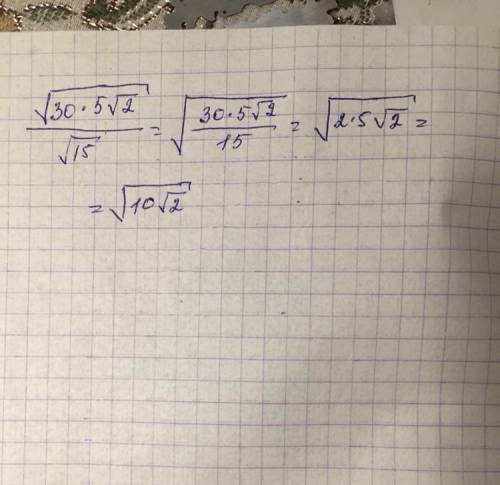 √(30·5√2)/√15 = √(30·5√2/15) = √(2·5√2) =
= √(10√2)